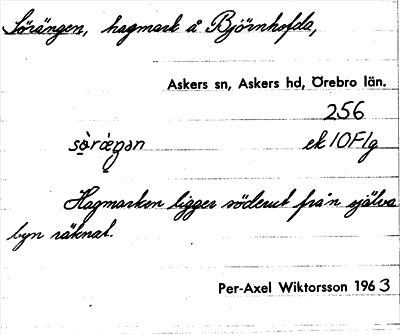 Sörängen, hagmark å Björnhofda,
Askers sn, Askers hd, Örebro län.
256
ek 10F1g
Hagmarken ligger söderut från själva
byn räknat.
Per-Axel Wiktorsson 1963